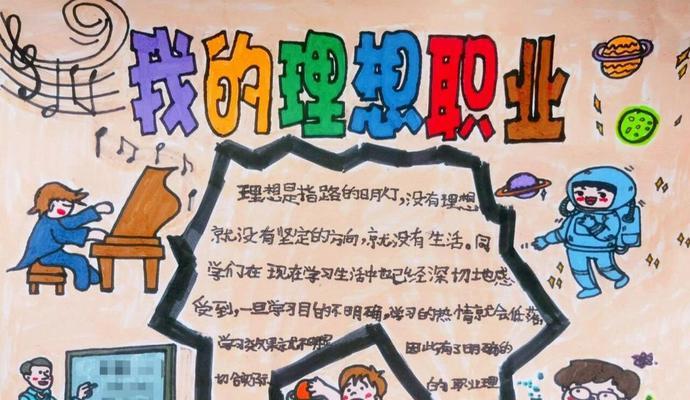 我的理想职业
理想是指路的明灯，没有理想
就没有坚定的方向，就没有生活。同
学们在现在学习生活中也已经深切地感
受到，一旦学习目的不明确，学习的热情就会低落，
学习效果就不明显 因此有了明确的
切合实际 的职业理